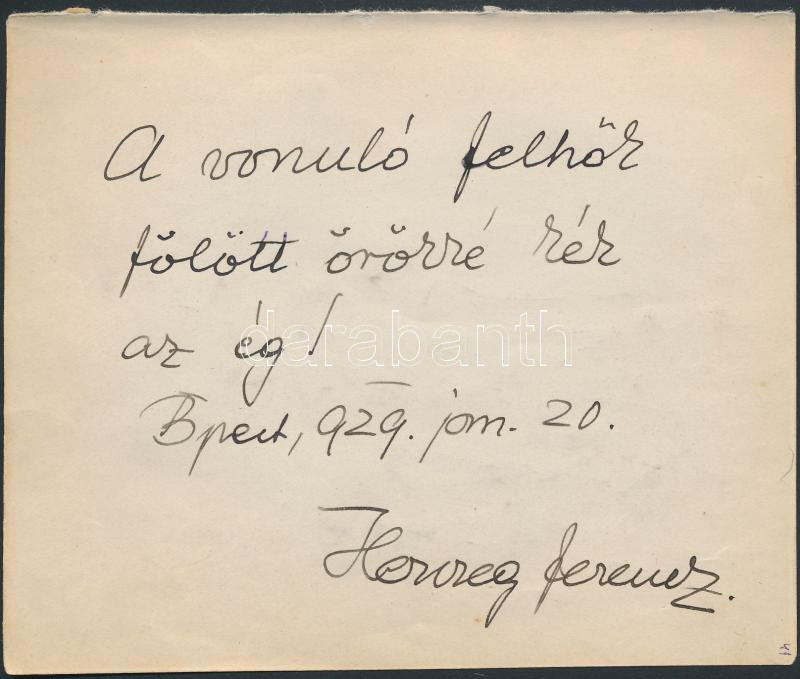 A vonuló felhők
fölött örökké kék
az ég!
darabanth
Bpest, 929. jan. 20.
Herczeg Ferencz.